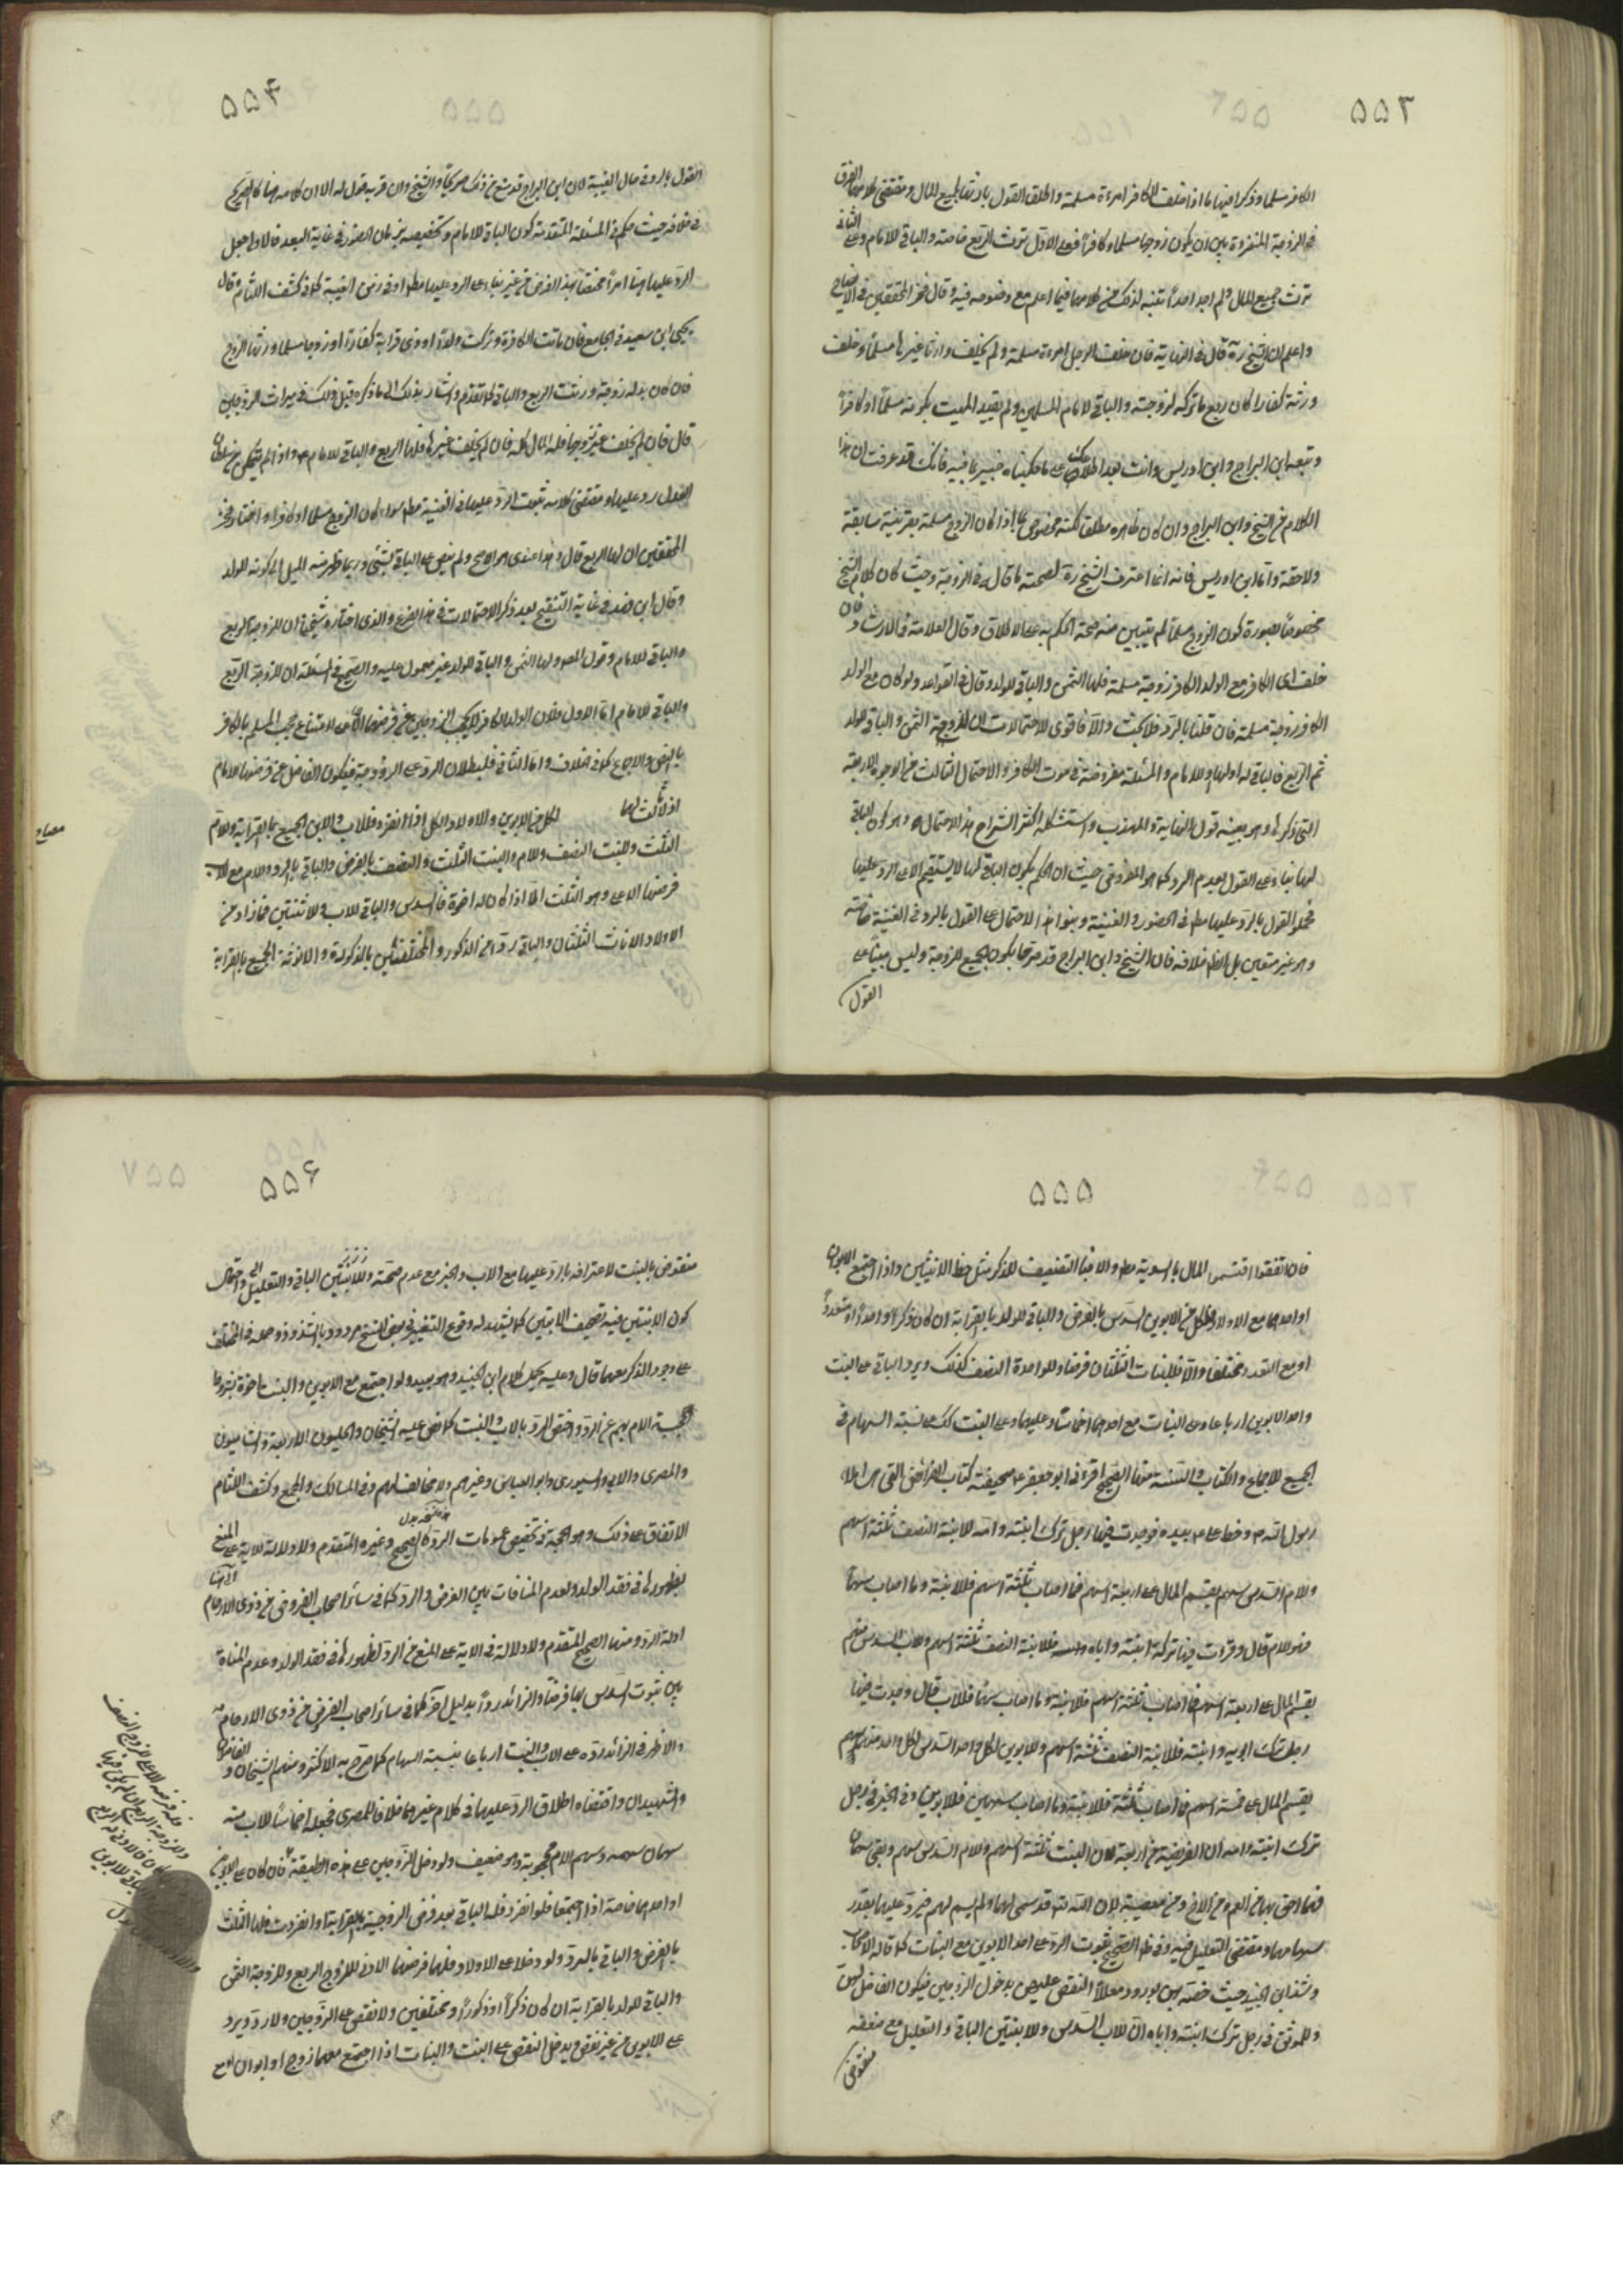 ۵۵۳
الكافر مسلما وذكرا فيها ما اذا خلفت الكافر امرءة مسلمة واطلق القول بارثها لجميع المال ومقتضى كلامهما الفرق
في الزوجية المنفردة بين ان يكون زوجها مسلما وكافرا فعلى الاول ترث الربع خاصة والباقي للامام وعلى الثاني
ترث جميع المال ولم اجد احدا تنبه لذلك من كلامهما فيما اعلم مع وضوحه فيه وقال فخر المحققين في الايضاح
واعلم ان الشيخ ره قال في النهاية فان خلف الرجل امرءة مسلمة ولم يخلف وارثا غيرها مسلما وخلف
ورثة كفارا كان ربع ما تركه لزوجته والباقي لامام المسلمين ولم يقيد الميت بكونه مسلما او كافرا
وتبعه ابن البراج وابن ادريس وانت بعد اطلاعك على ما حكيناه خبير بما فيه فانك قد عرفت ان هذا
الكلام من الشيخ وابن البراج وان كان ظاهره مطلقا لكنه مخصوص بما اذا كان الزوج مسلما بقرينة سابقة
ولاحقة واما ابن ادريس فانه انما اعترف الشيخ ره لصحة ما قاله في الزوجية وحيث كان كلام الشيخ
مخصوصا بصورة كون الزوج مسلما لم يتبين منه صحة الحكم به على الاطلاق وقال العلامة في الارشاد فان
خلف اى الكافر مع الولد الكافر زوجة مسلمة فلها الثمن والباقي للولد وقال في القواعد ولو كان مع الولد
الكافر زوجة مسلمة فان قلنا بالرد فلا بحث والا فاقوى الاحتمالات ان للزوجة الثمن والباقي للولد
ثم الربع فالباقي له او لها او للامام والمسئلة مفروضة في موت الكافر والاحتمال الثالث من الوجوه الاربعة
التي ذكرها وهو بعينه قول النهاية والمهذب واستشكله اكثر الشراح هذا الاحتمال وهو كون الباقي
لها بناء على القول بعدم الرد كما هو المفروض حيث ان الحكم بكون الباقي لها لا يستقيم الا على الرد عليها
فحملوا القول بالرد عليها مطلقا في الحضور والغيبة وبنوا هذا الاحتمال على القول بالرد في الغيبة خاصة
وهو غير متعين بل الظاهر خلافه فان الشيخ وابن البراج قد صرحا بكون الجميع للزوجة وليس مبنيا على
القول
۵۵۴
القول بالرد في حال الغيبة لان ابن البراج قد منع من ذلك صريحا والشيخ وان قربه بقول له الا ان كلامه هنا كالصريح
في خلافه حيث حكم في المسئلة المتقدمة بكون الباقي للامام وتخصيصه بزمان الحضور في غاية البعد فالاولى جعل
الرد عليها هنا امرا مختصا بهذا الفرض من غير بناء على الرد عليها مطلقا او في زمن الغيبة كما في كشف اللثام وقال
يحيى ابن سعيد في الجامع فان ماتت الكافرة وتركت ولدا او ذى قرابة كفارا او زوجا مسلما ورثها الزوج
فان كان بدله زوجة ورثت الربع والباقي كما تقدم واشار بذلك الى ما ذكره قبل ذلك في ميراث الزوجين
قال فان لم يخلف غير زوجها فله المال كله فان لم يخلف غيرها فلها الربع والباقي للامام ع واذا لم يتمكن من سلطان
العدل رد عليها ومقتضى كلامه ثبوت الرد عليها في الغيبة مطلقا سواء كان الزوج مسلما او كافرا واختار فخر
المحققين ان لها الربع قال وهذا عندى هو الاصح ولم ينص على الباقي بشئ وربما ظهر منه الميل الى كونه للولد
وقال ابن فهد في غاية التنقيح بعد ذكر الاحتمالات في هذا الفرع والذى اختاره شيخنا ان للزوجة الربع
والباقي للامام وقول المص ولها الثمن والباقي للولد غير معمول عليه والصحيح في المسئلة ان للزوجة الربع
والباقي للامام اما الاول فلان الولد الكافر لا يحجب الزوجين عن فرضهما الاعلى لامتناع حجب المسلم بالكافر
بالنص والاجماع كما في الخلاف واما الثاني فلبطلان الرد على الزوجة فيكون الفاضل عن فرضها للامام
اذ لا ثالث لهما لكل من الابوين والاولاد الكل اذا انفرد فللاب والابن الجميع بالقرابة وللام
الثلث وللبنت النصف وللام والبنت الثلث والنصف بالفرض والباقي بالرد وللام مع الاب
فرضها الاعلى وهو الثلث الا اذا كان له اخوة فالسدس والباقي للاب وللاثنتين فما زاد من
الاولاد الاناث الثلثان والباقي ردا ومن الذكور والمختلفين بالذكورة والانوثة الجميع بالقرابة
۵۵۵
فان اتفقوا اقتسموا المال بالسوية مطلقا والا فبالتنصيف للذكر مثل حظ الانثيين واذا اجتمع الابوان
او احدهما مع الاولاد فلكل من الابوين السدس بالفرض والباقي للولد بالقرابة ان كان ذكرا واحدا او متعددا
او مع التعدد مختلفا والا فللبنات الثلثان فرضا وللواحدة النصف كذلك ويرد الباقي على البنت
واحد الابوين ارباعا وعلى البنات مع احدهما اخماسا وعليهما وعلى البنت كك على نسبة السهام في
الجميع للاجماع والكتاب والسنة منها الصحيح اقرءنى ابو جعفر ع صحيفة كتاب الفرائض التي هى املاء
رسول الله ص وخط على ع بيده فوجدت فيها رجل ترك ابنته وامه للابنة النصف ثلثة اسهم
وللام السدس سهم يقسم المال على اربعة اسهم فما اصاب ثلثة اسهم فللابنة وما اصاب سهما
فهو للام قال وقرات فيها تركه ابنته واباه فللابنة النصف ثلثة اسهم وللاب السدس سهم
يقسم المال على اربعة اسهم فما اصاب ثلثة اسهم فللابنة وما اصاب سهما فللاب قال ووجدت فيها
رجل ترك ابويه وابنته فللابنة النصف ثلثة اسهم وللابوين لكل واحد السدس لكل واحد منهما سهم
يقسم المال على خمسة اسهم فما اصاب ثلثة فللابنة وما اصاب سهمين فللابوين وفي الخبر في رجل
ترك ابنته وامه ان الفريضة من اربعة لان البنت ثلثة اسهم وللام السدس سهم وبقى سهمان
فهما احق بهما من العم ومن الاخ ومن العصبة لان الله تعالى قد سمى لهما ولم يسم لهم فيرد عليهما بقدر
سهامهما ومقتضى التعليل فيه وفي ظاهر الصحيح ثبوت الرد على احد الابوين مع البنات كما قاله الاصحاب
وشذ ابن الجنيد حيث خصه بهن بورود معللا النقص عليهن بدخول الزوجين فيكون الفاضل لهن
وللموثق في رجل ترك ابنتيه واباه ان للاب السدس وللابنتين الباقي والتعليل مع ضعفه
منقوض
۵۵۶
منقوض بالبنت لاعترافه بالرد عليها مع الاب والخبر مع عدم صحته وللابنتين الباقي والتعليل واحتمال
كون الابنتين فيه تصحيف الابنين كما يشهد له وقوع التغيير في بعض النسخ مردود بالشذوذ وحمله في المختلف
على وجود الذكر معهما قال وعليه يحمل كلام ابن الجنيد وهو بعيد ولو اجتمع مع الابوين والبنت اخوة بشروط
حجب الام بهم عن الرد واختص الرد بالاب والبنت كما نص عليه الشيخان والحليون الاربعة والشاميون
والمصرى والابى والسيورى وابو العباس وغيرهم ولا مخالف لهم وفي المسالك والمجمع وكشف اللثام
الاتفاق على ذلك وهو الحجة في تخصيص عمومات الرد كالصحيح وغيره المتقدم ولا دلالة للاية على المنع
لظهورها في فقد الولد ولعدم المنافات بين الفرض والرد كما في سائر اصحاب الفروض من ذوى الارحام
ادلة الرد ومنها الصحيح المتقدم ولا دلالة في الاية على المنع من الرد لظهورها في فقد الولد وعدم المنافاة
بين ثبوت السدس بها فرضا والزائد ردا بدليل اخر كما في سائر اصحاب الفرض من ذوى الارحام
والاظهر في الزائد رده على الاب والبنت ارباعا بنسبة السهام كما صرح به الاكثر ومنهم الشيخان والفاضلان
والشهيدان واقتضاه اطلاق الرد عليهما في كلام غيرهما خلافا للمصرى فجعله اخماسا للاب منه
سهمان سهمه وسهم الام المحجوبة وهو ضعيف ولو دخل الزوجين على هذه الطبقة فان كان على الابوين
او احدهما خاصة اذا اجتمعا فلو انفرد فله الباقي بعد فرض الزوجية بالقرابة او انفردت فلها الثلث
بالفرض والباقي بالرد ولو دخلا على الاولاد فلهما فرضهما الادنى للزوج الربع وللزوجة الثمن
والباقي للولد بالقرابة ان كان ذكرا او ذكورا او مختلفين ولا نقص على الزوجين ولا رد ويرد
على الابوين من غير نقص ويدخل النقص على البنت والبنات اذا اجتمع معهما زوج او ابوان او مع
فله فرضه الاعلى للزوج النصف
وللزوجة الربع